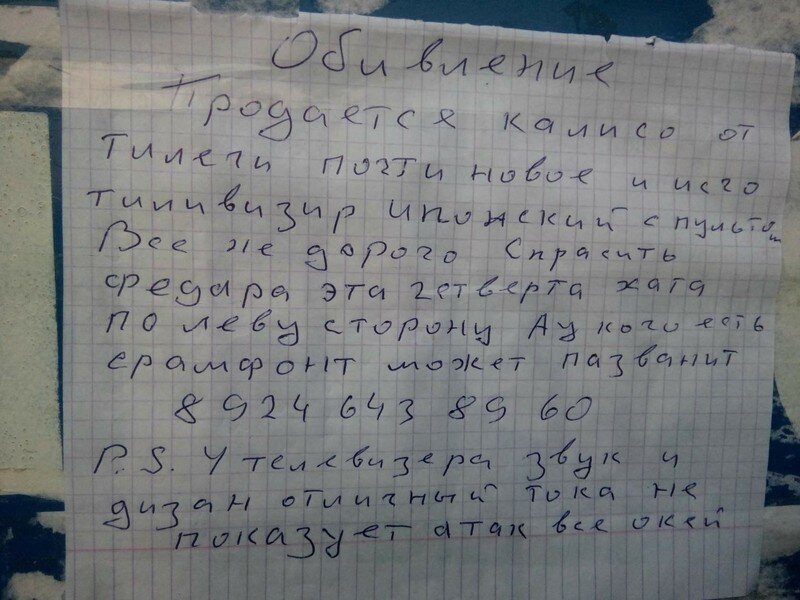 Обивление
Продается калисо от
тилеги почти новое и исго
тиливизир ипонский с пультом
Все не дорого Спрасить
федара эта четверта хата
по леву сторону А у кого есть
срамфонт может пазванит
8 924 643 89 60
P.S. У телевизера звук и
дизан отличный тока не
показует атак все окей